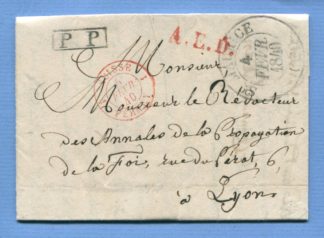 P P
A.E.D.
SUISSE
4
FEVR.
1840
Monsieur
Monsieur le Rédacteur
des Annales de la Propagation
de la Foi, rue du Pérat, 6,
à Lyon